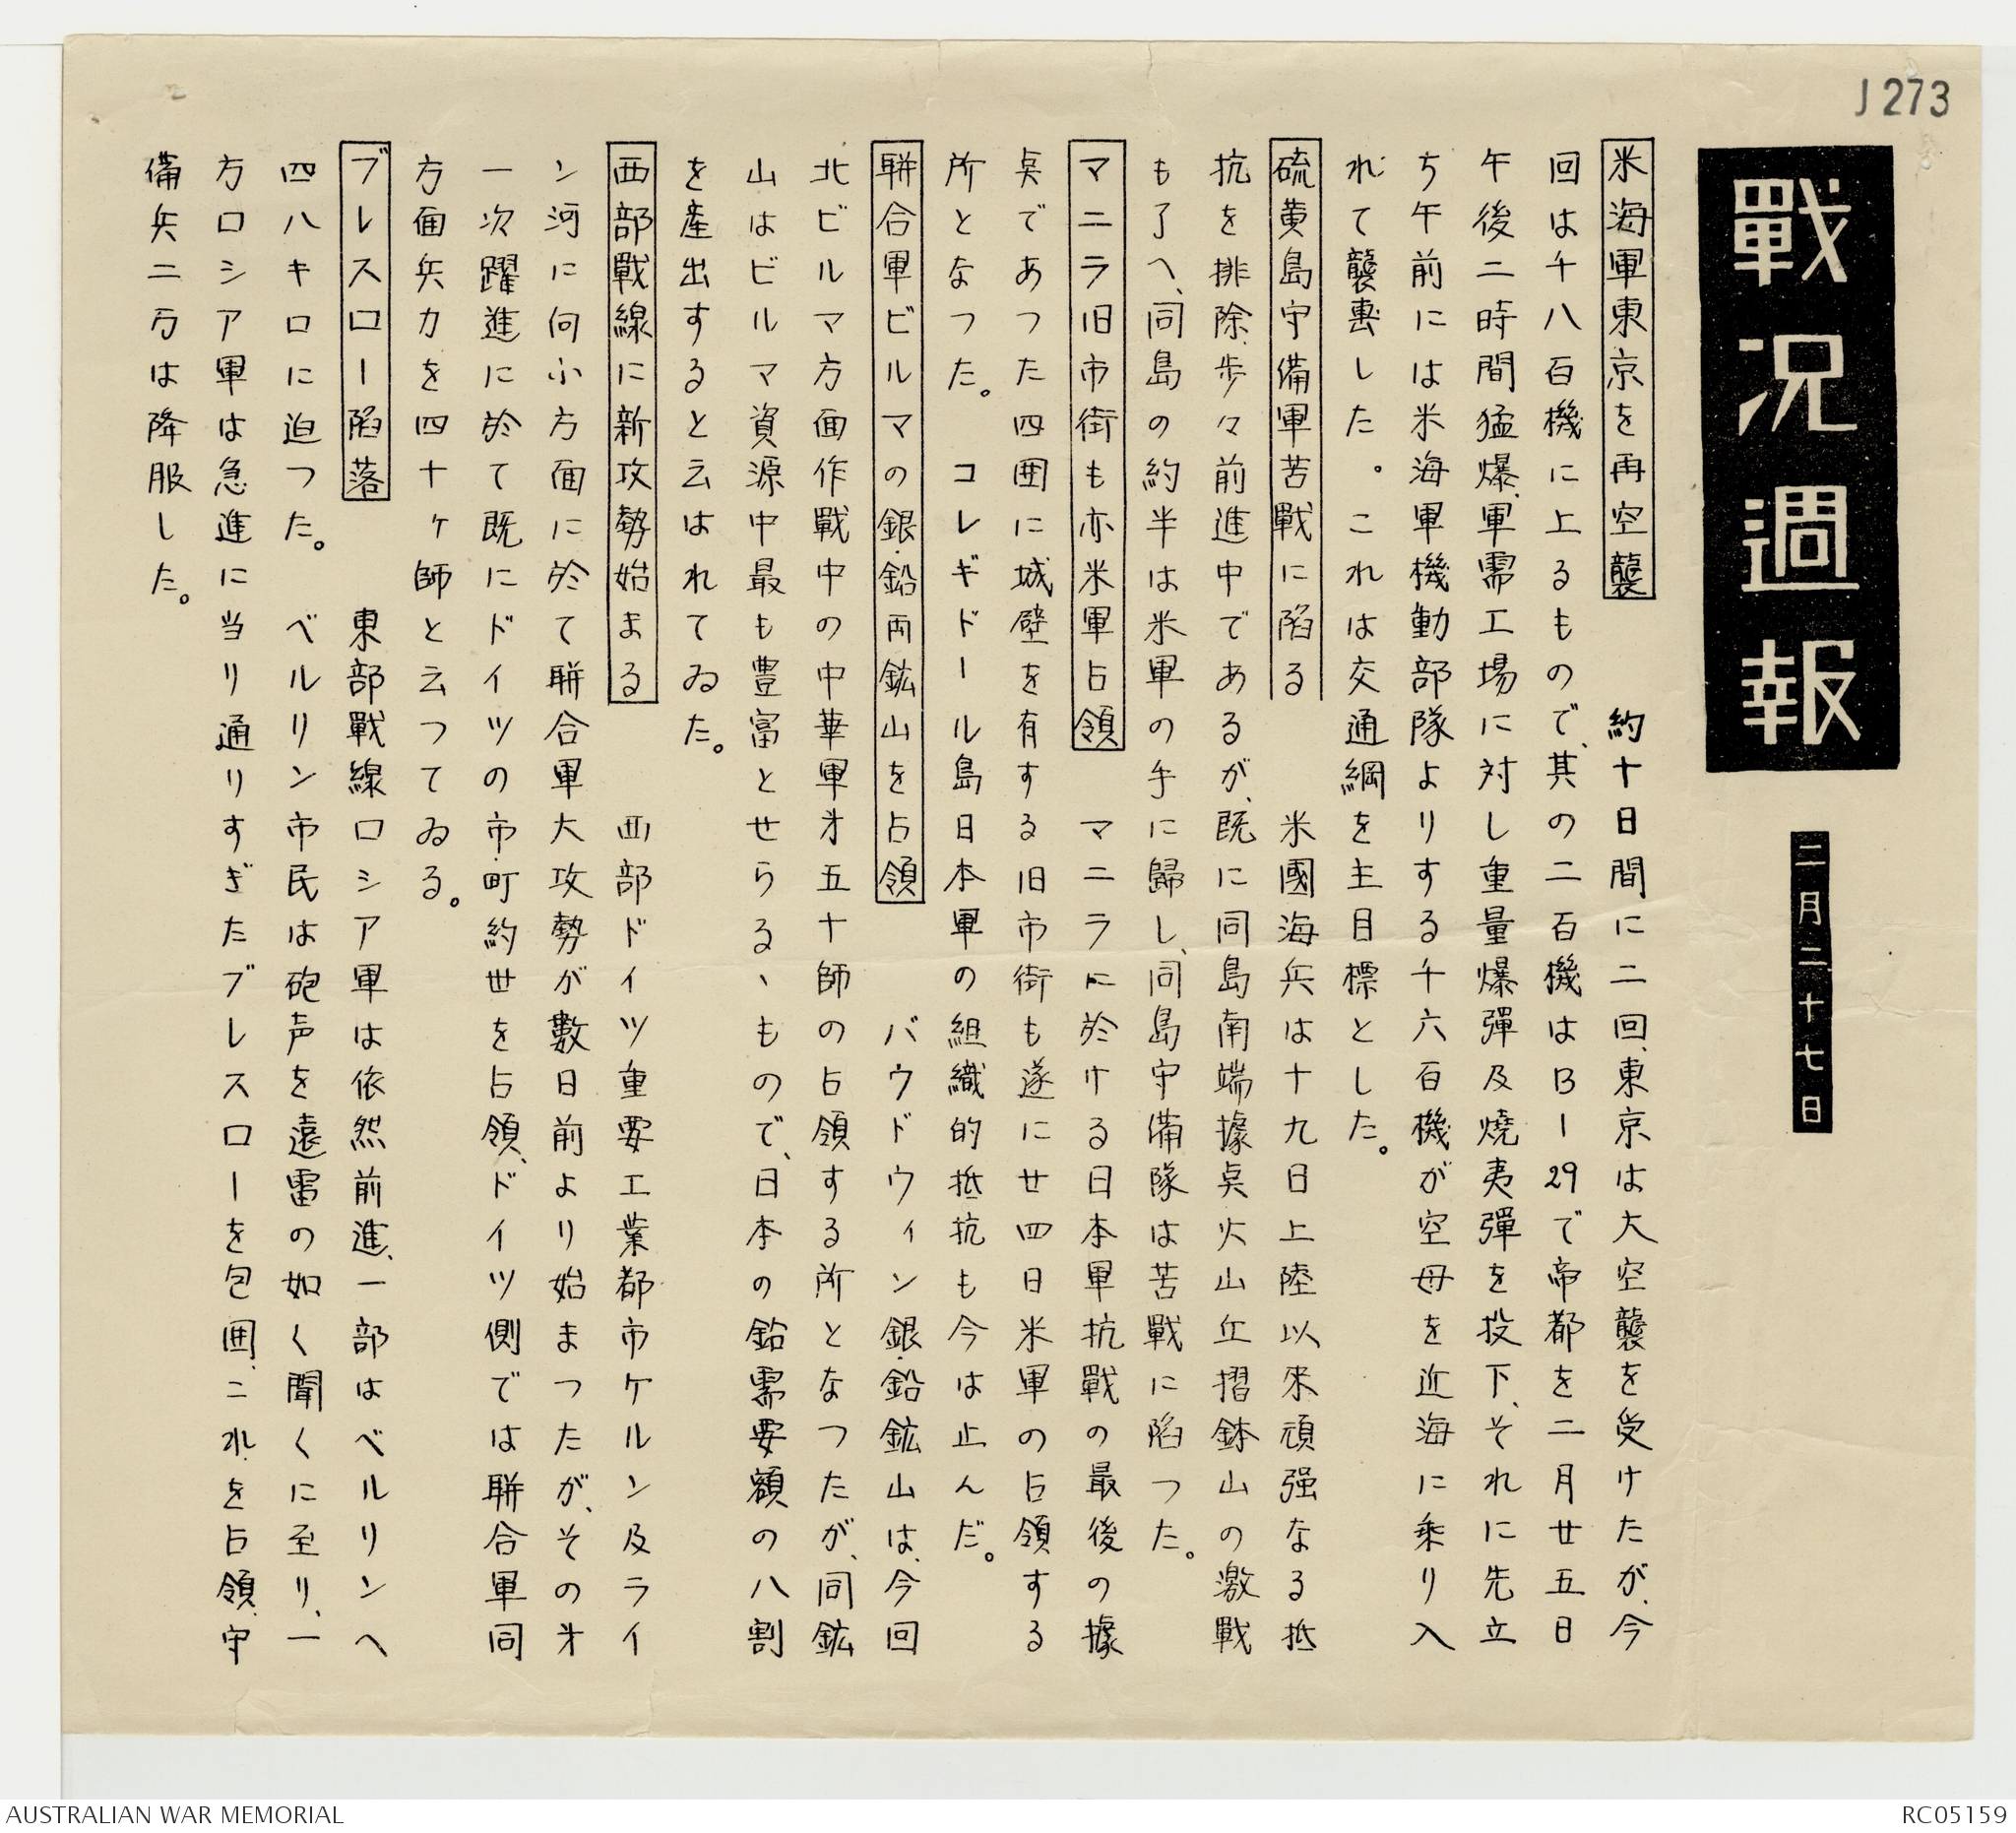 J 273
戰況週報
二月二十七日
米海軍東京を再空襲 約十日間に二回、東京は大空襲を受けたが、今
回は千八百機に上るもので、其の二百機はB-29で帝都を二月廿五日
午後二時間猛爆、軍需工場に対し重量爆彈及燒夷彈を投下、それに先立
ち午前には米海軍機動部隊よりする千六百機が空母を近海に乘り入
れて襲轟した。これは交通綱を主目標とした。
硫黄島守備軍苦戰に陷る 米國海兵は十九日上陸以來頑强なる抵
抗を排除、歩々前進中であるが、既に同島南端據点火山丘摺鉢山の激戰
も了へ、同島の約半は米軍の手に歸し、同島守備隊は苦戰に陷つた。
マニラ旧市街も亦米軍占領 マニラに於ける日本軍抗戰の最後の據
点であつた四囲に城壁を有する旧市街も遂に廿四日米軍の占領する
所となつた。 コレギドール島日本軍の組織的抵抗も今は止んだ。
聯合軍ビルマの銀・鉛両鉱山を占領 バウドウィン銀・鉛鉱山は、今回
北ビルマ方面作戰中の中華軍才五十師の占領する所となつたが、同鉱
山はビルマ資源中最も豊富とせらるゝもので、日本の鉛需要額の八割
を産出すると云はれてゐた。
西部戰線に新攻勢始まる 西部ドイツ重要工業都市ケルン及ライ
ン河に向ふ方面に於て聯合軍大攻勢が數日前より始まつたが、その才
一次躍進に於て既にドイツの市・町約丗を占領、ドイツ側では聯合軍同
方面兵力を四十ヶ師と云つてゐる。
ブレスロー陷落 東部戰線ロシア軍は依然前進、一部はベルリンへ
四八キロに迫つた。 ベルリン市民は砲声を遠雷の如く聞くに至り、一
方ロシア軍は急進に当り通りすぎたブレスローを包囲、これを占領、守
備兵二万は降服した。
AUSTRALIAN WAR MEMORIAL
RC05159